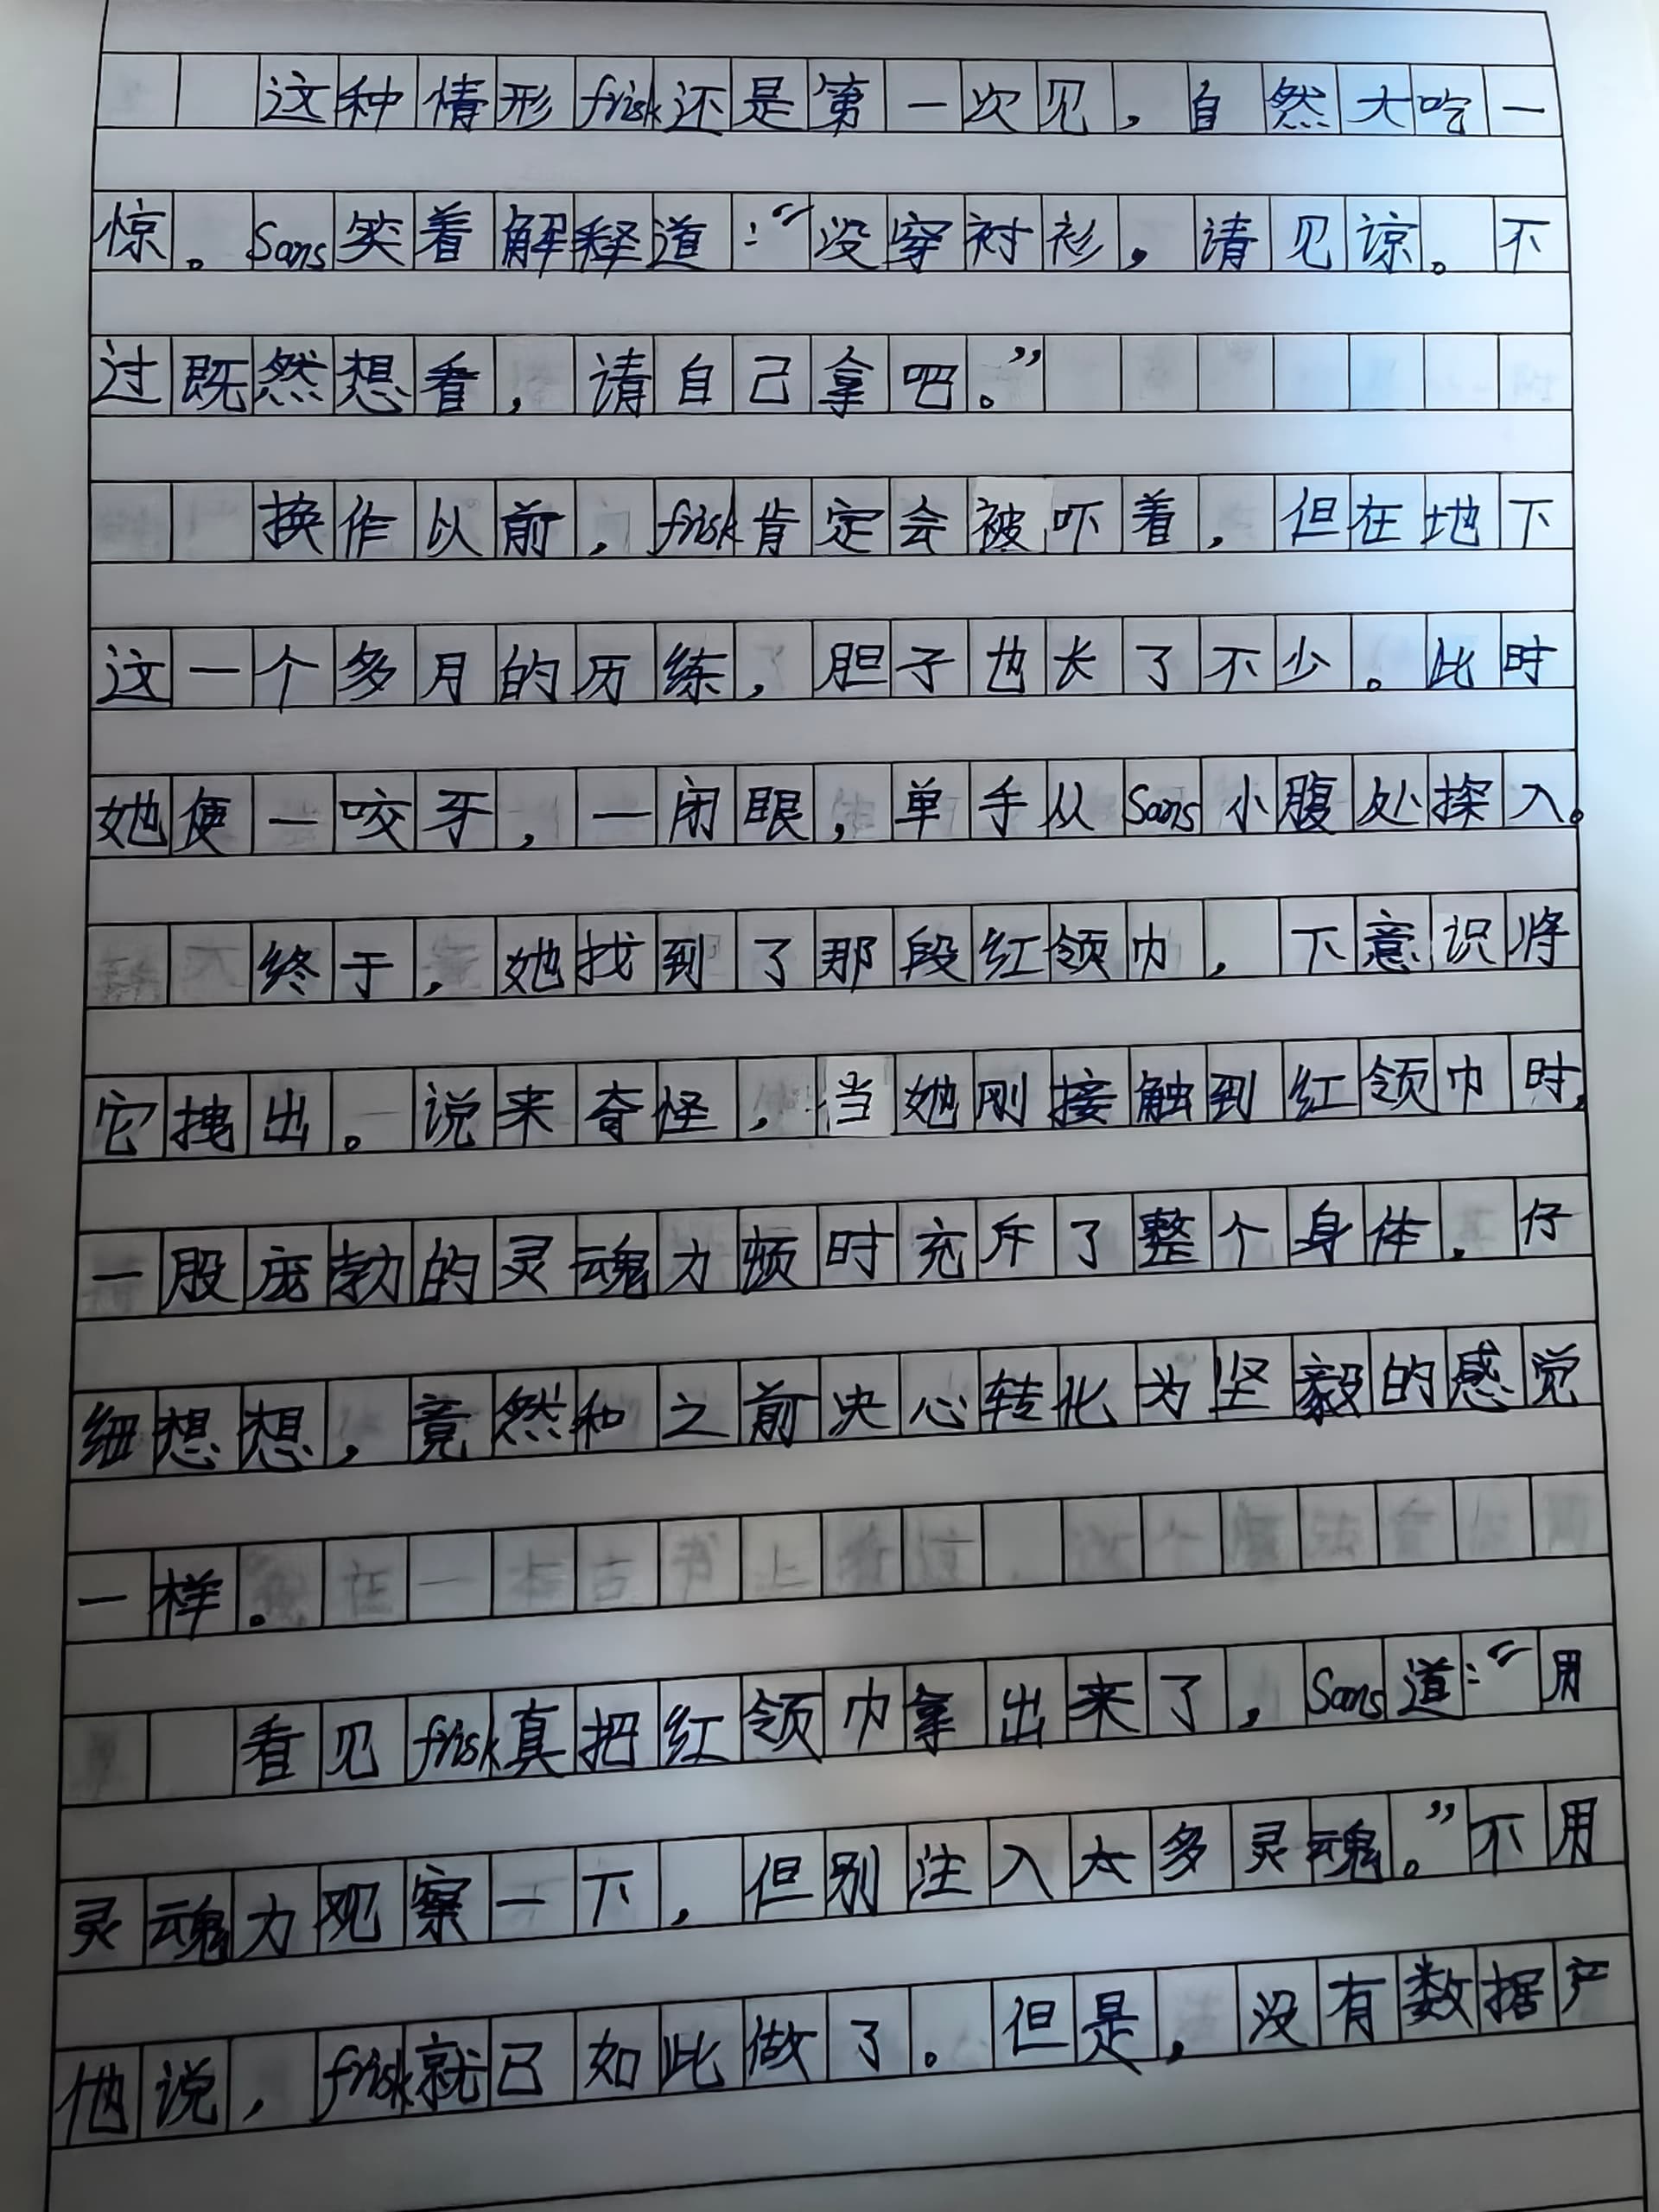 这种情形frisk还是第一次见，自然大吃一
惊。Sans笑着解释道：“没穿衬衫，请见谅。不
过既然想看，请自己拿吧。”
换作以前，frisk肯定会被吓着，但在地下
这一个多月的历练，胆子也长了不少。此时
她便一咬牙，一闭眼，单手从Sans小腹处探入。
终于，她找到了那段红领巾，下意识将
它拽出。说来奇怪，当她刚接触到红领巾时，
一股庞勃的灵魂力顿时充斥了整个身体，仔
细想想，竟然和之前决心转化为坚毅的感觉
一样。
看见frisk真把红领巾拿出来了，Sans道：“用
灵魂力观察一下，但别注入太多灵魂。”不用
他说，frisk就已如此做了。但是，没有数据产